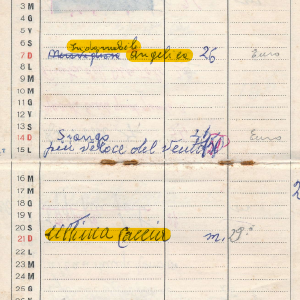 3 M
4 G
5 V
6 S
Indomabile
7 D Meravigliosa Angelica 26 Euro
8 L
9 M
10 M
11 G
12 V
13 S
Sfango
14 D Euro
15 L più veloce del vento
16 M
17 M
18 G
19 V
20 S
21 D ultima caccia m. 29
22 L
23 M
24 M
25 G
26 V